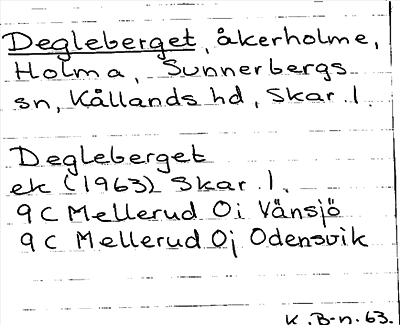 Degleberget, åkerholme,
Holma, Sunnerbergs
sn, Kållands hd, Skar. l.
Degleberget
ek (1963) Skar. l.
9 C Mellerud Oi Vänsjö
9 C Mellerud Oj Odensvik
K. B-n. 63.